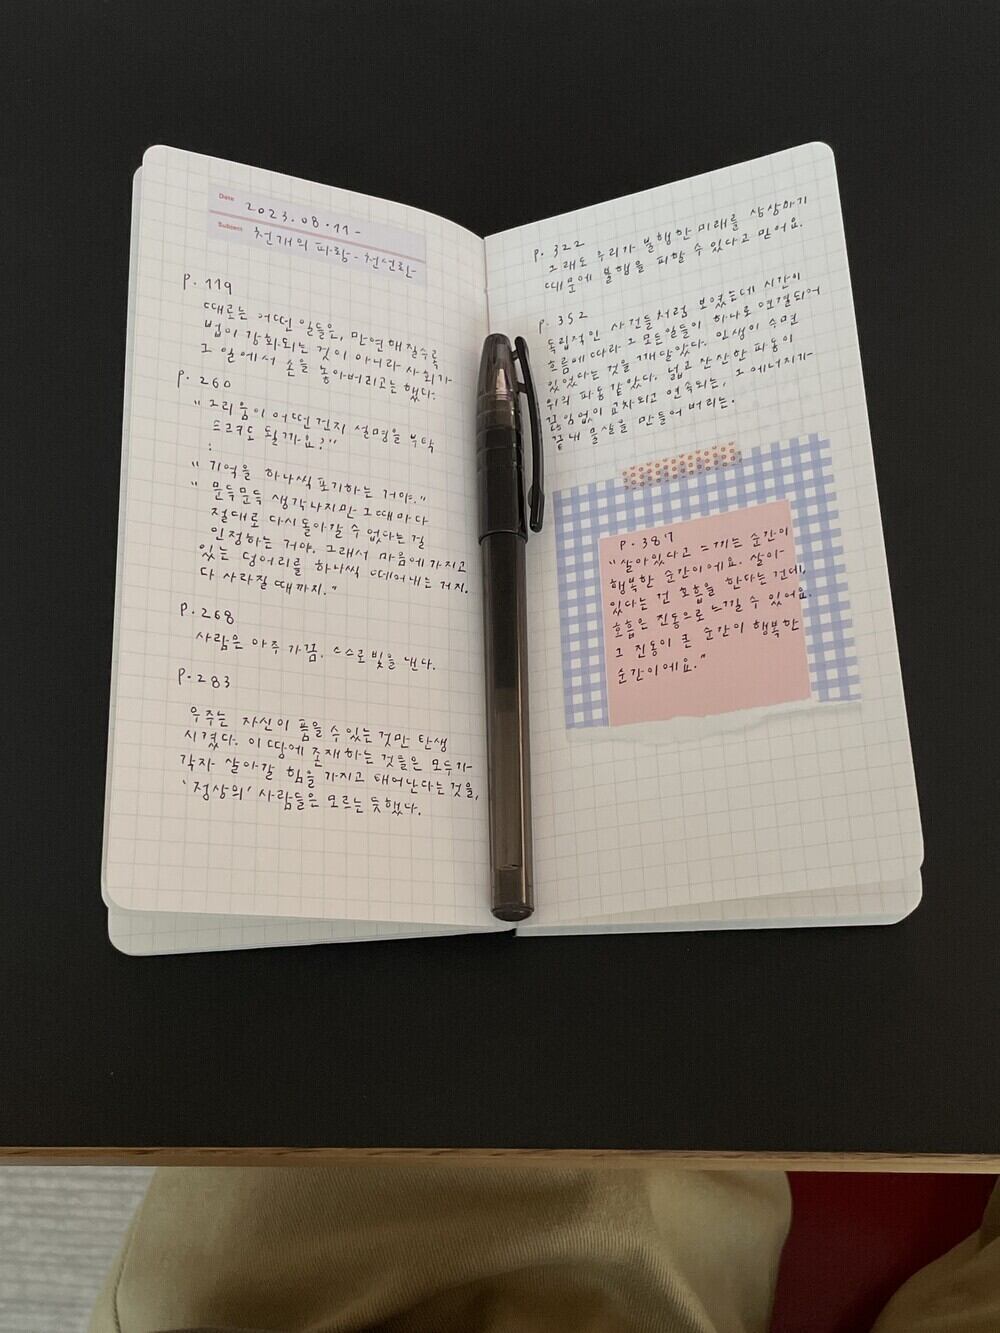 Date 2023.08.11-
Subject 천 개의 파랑 - 천선란
p. 119
때로는 어떤 일들은, 만연해질수록
법이 강화되는 것이 아니라 사회가
그 일에서 손을 놓아버리고는 했다.
p. 260
"그리움이 어떤 건지 설명을 부탁
드려도 될까요?"
:
"기억을 하나씩 포기하는 거야."
"문득문득 생각나지만 그때마다
절대로 다시 돌아갈 수 없다는 걸
인정하는 거야. 그래서 마음에 가지고
있는 덩어리를 하나씩 떼어내는 거지.
다 사라질 때까지."
p. 268
사람은 아주 가끔, 스스로 빛을 낸다.
p. 283
우주는 자신이 품을 수 있는 것만 탄생
시켰다. 이 땅에 존재하는 것들은 모두가
각자 살아갈 힘을 가지고 태어난다는 것을,
'정상의' 사람들은 모르는 듯했다.
p. 322
그래도 우리가 불행한 미래를 상상하기
때문에 불행을 피할 수 있다고 믿어요.
p. 352
독립적인 사건들처럼 보였는데 시간이
흐름에 따라 그 모든 일들이 하나로 연결되어
있었다는 것을 깨달았다. 인생이 수면
위의 파동 같았다. 넓고 잔잔한 파동이
끊임없이 교차되고 연속되는, 그 에너지가
끝내 물살을 만들어 버리는.
p. 387
"살아있다고 느끼는 순간이
행복한 순간이에요. 살아
있다는 건 호흡을 한다는 건데,
호흡은 진동으로 느낄 수 있어요.
그 진동이 큰 순간이 행복한
순간이에요."